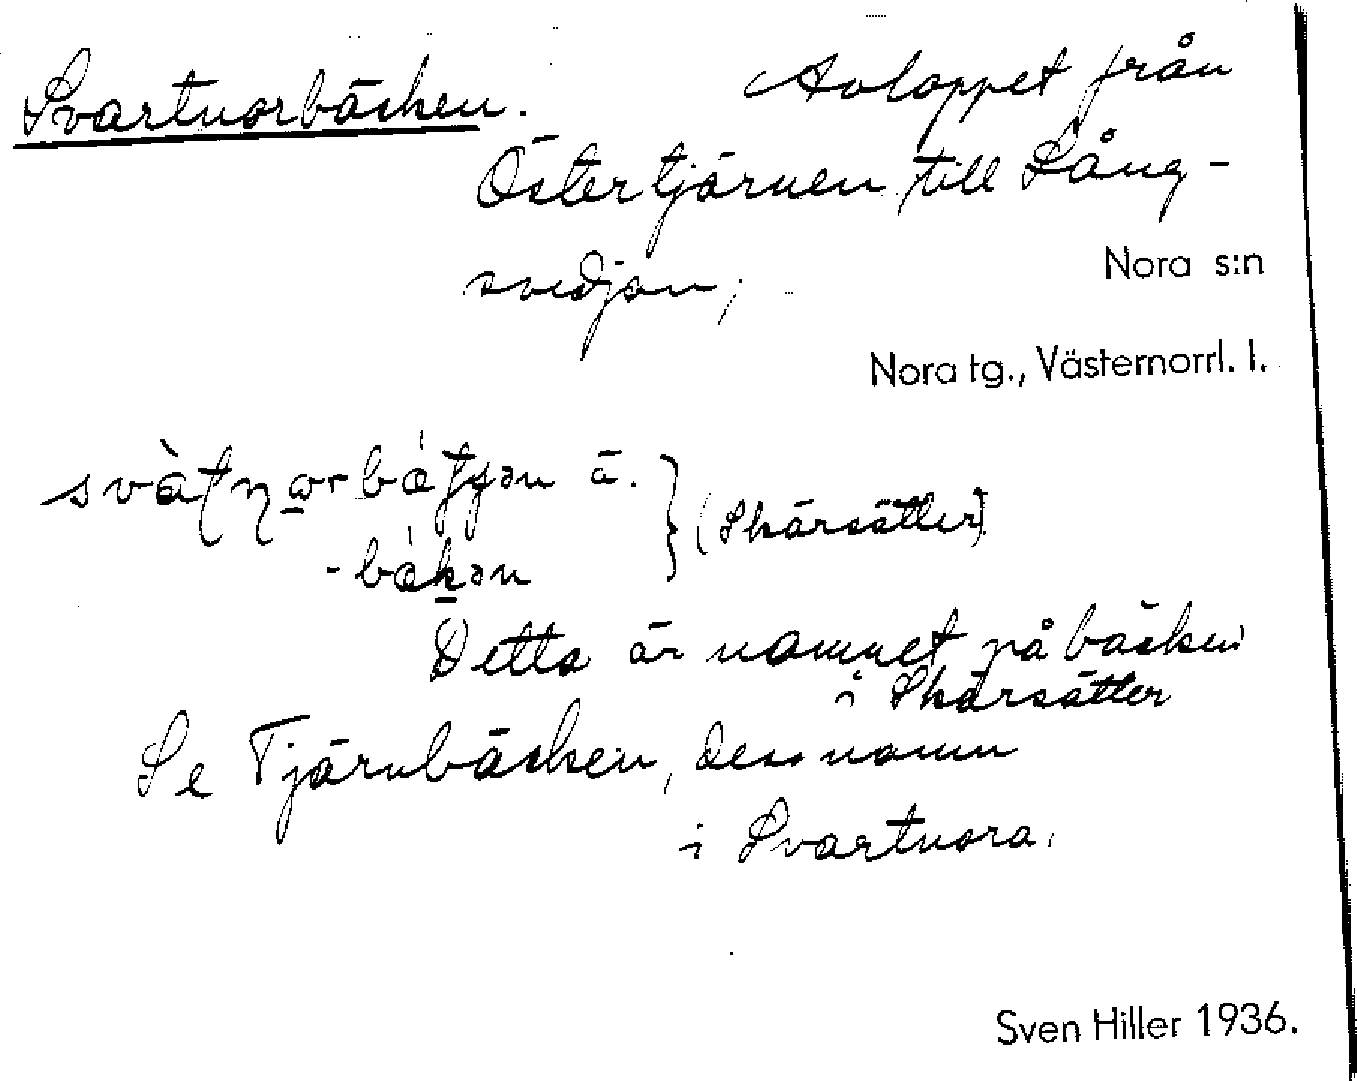 Svartnorbäcken. Avloppet från
Östertjärnen till Lång-
svedjan;
Nora s:n
Nora tg., Västernorrl. l.
ä.
-båkən
(Skärsätter).
Detta är namnet på bäcken
i Skärsätter
Se Tjärnbäcken, dess namn
i Svartnora.
Sven Hiller 1936.